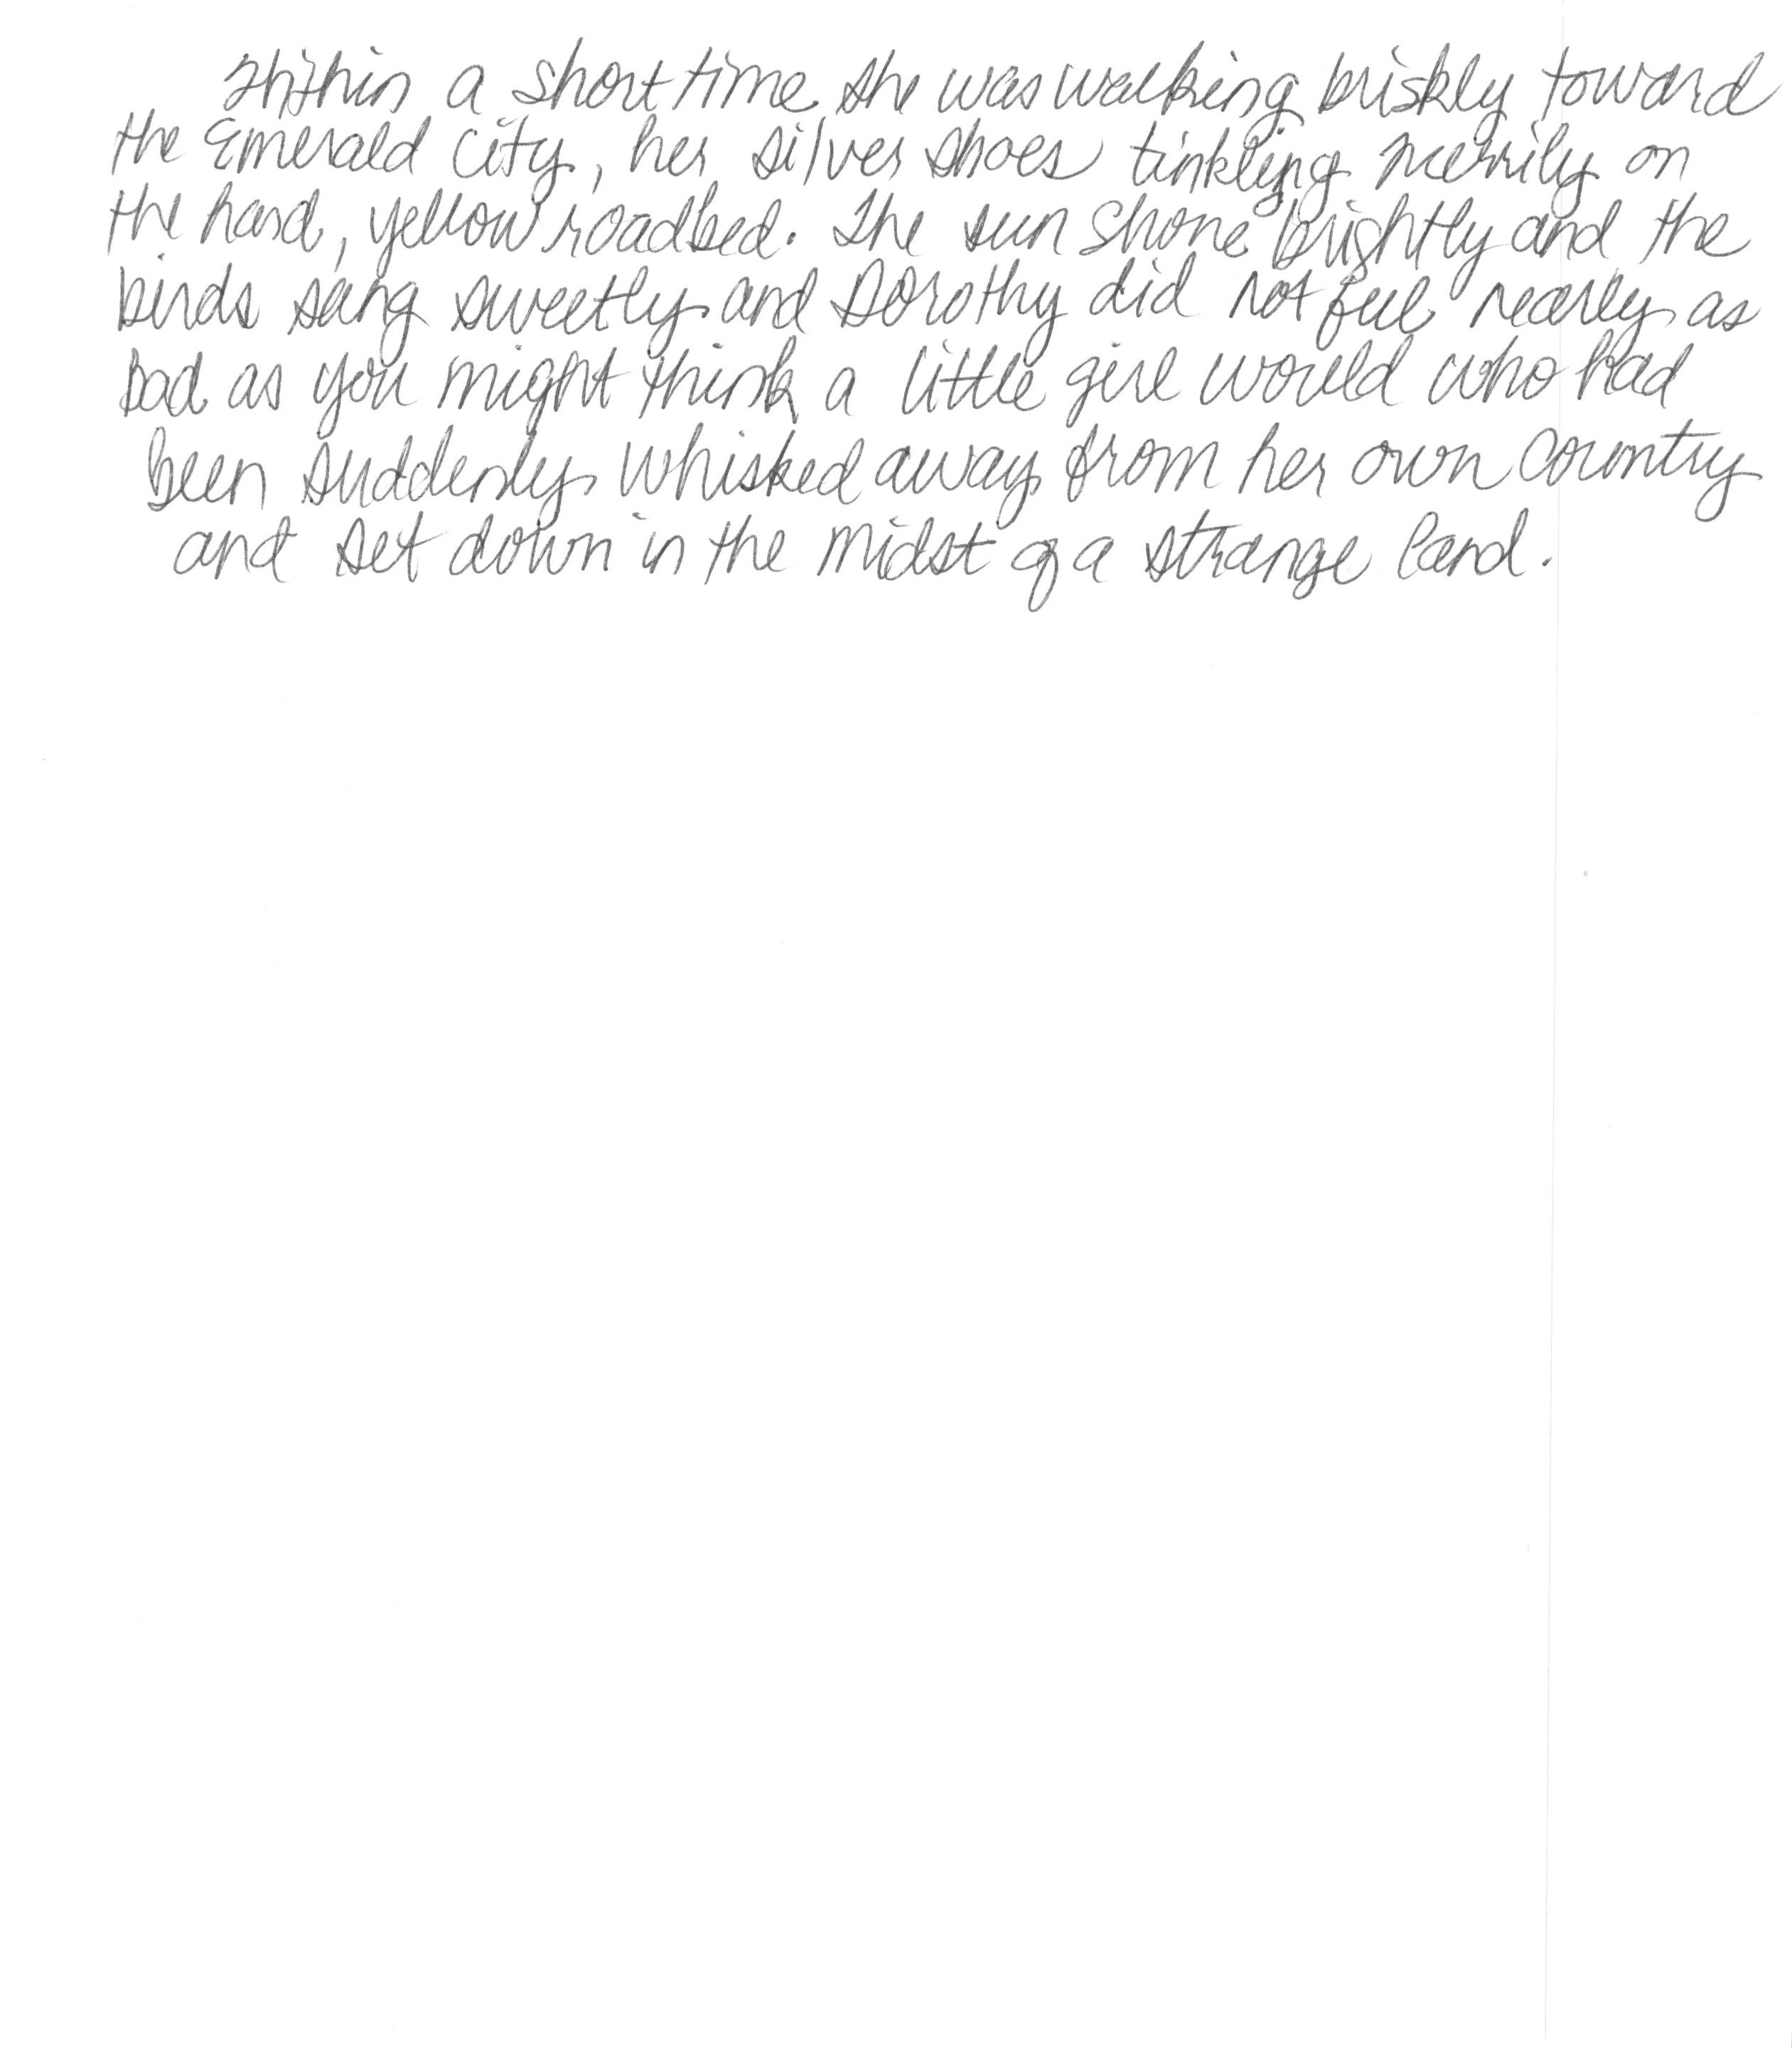 Within a short time she was walking briskly toward
the Emerald City, her silver shoes tinkling merrily on
the hard, yellow roadbed. The sun shone brightly and the
birds sang sweetly and Dorothy did not feel nearly as
bad as you might think a little girl would who had
been suddenly whisked away from her own country
and set down in the midst of a strange land.